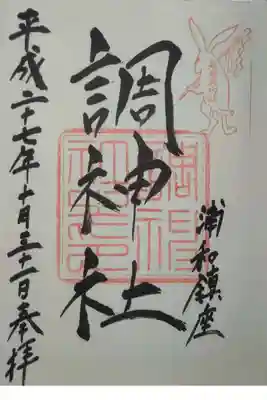 浦和鎮座
調神社
平成二十七年十月三十一日奉拝